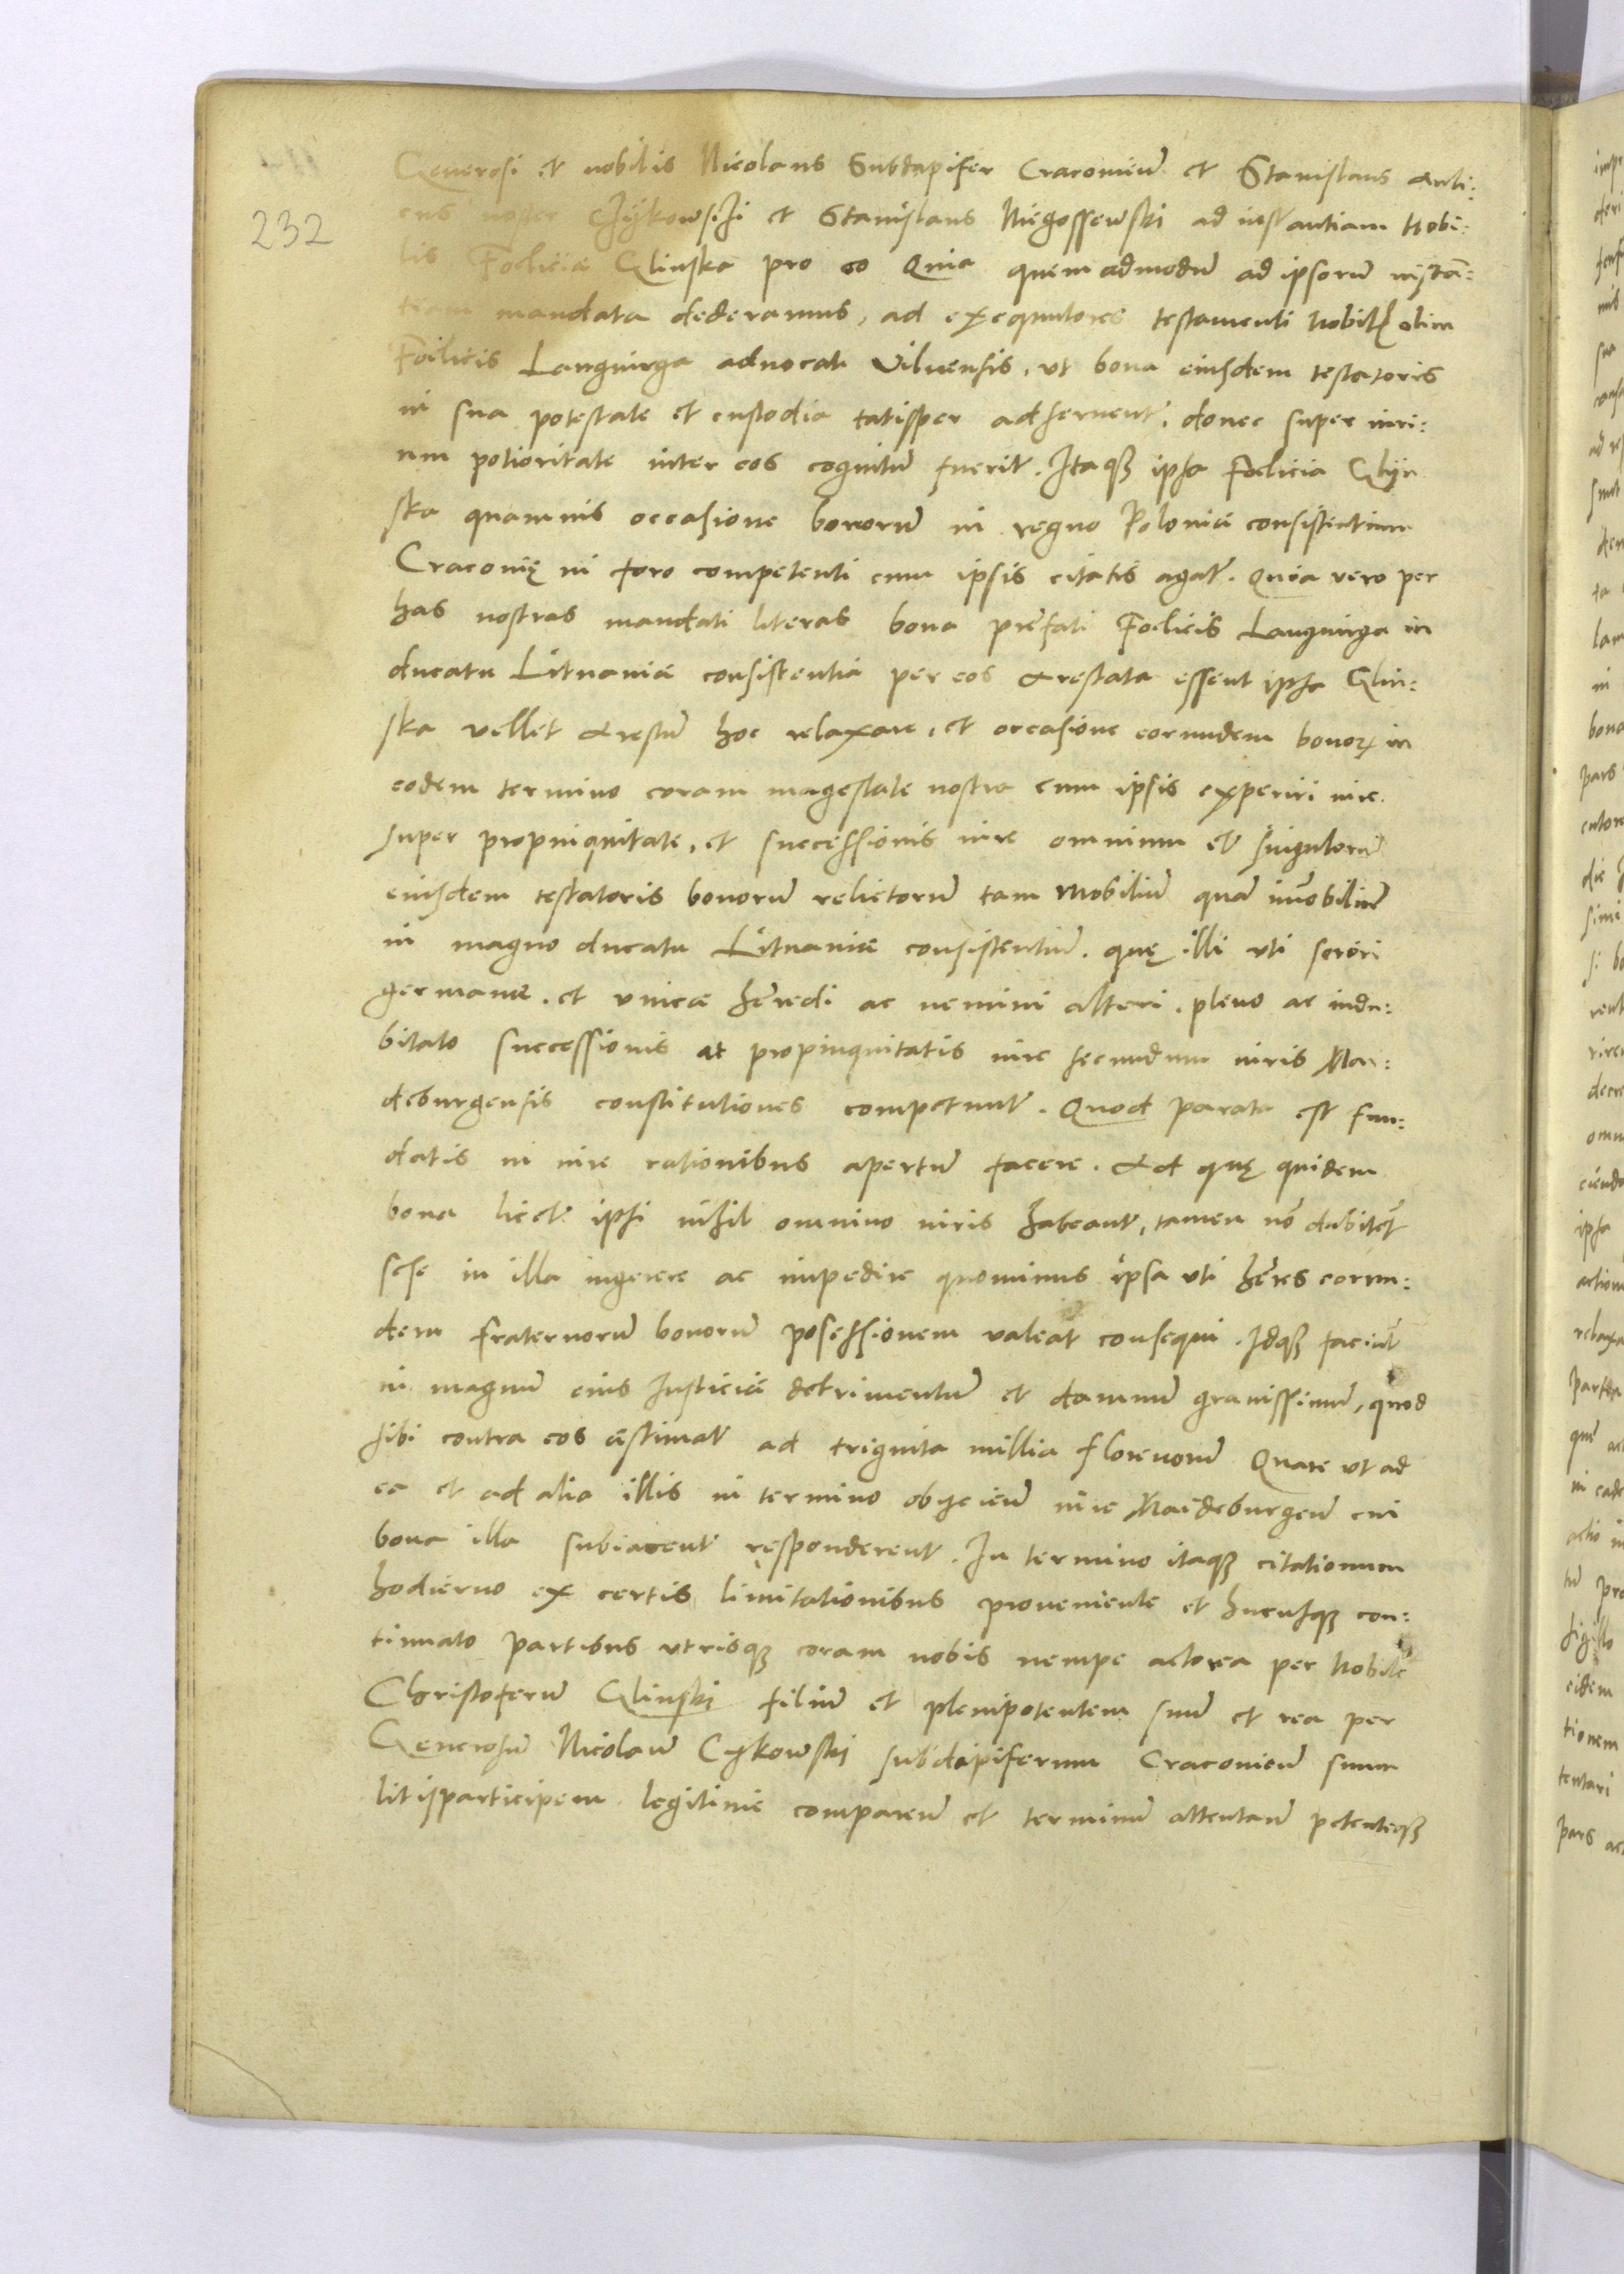 232
Generosi et nobilis Nicolaus Subdapifer Cracovieñ et Stanislaus Auli:
cus noster Czijkowsczi et Stanislaus Niegossewski ad instantiam Nobi:
lis Foelicia Glinska pro eo Quia quemadmodũ ad ipsorũ instã:
tiam mandata dederamus, ad exequutores testamenti Nobilis olim
Foelicis Languirga advocati Vilnensis, ut bona eiusdem testatoris
in sua potestate et custodia tatisper adservent, donec super iuri:
um potioritate inter eos cognitũ fuerit. Itaqз ipsa Foelicia Glijn
ska quamvis occasione bonorũ in regno Poloniæ consistentium
Cracovię in foro competenti cum ipsis citatis agat. Quia vero per
has nostras mandati literas bona præfati Foelicis Languirga in
ducatu Lituaniæ consistentia per eos arestata essent ipsa Glin:
ska vellet arestũ hoc relaxare, et occasione eorundem bonoꝝ in
eodem termino coram magestate nostra cum ipsis experiri iure
super propinquitate, et successionis iure omnium et singulorũ
eiusdem testatoris bonorũ relictorũ tam Mobiliũ quã imobiliũ
in magno ducatu Lituaniæ consistentiũ. quę illi uti sorori
germanæ, et unicæ hæredi ac nemini alteri, pleno ac indu:
bitato successionis ac propinquitatis iure secundum iuris Mai:
deburgensis constitutiones competunt. Quod parata est fun:
datis in iure rationibus apertũ facere. Ad quę quidem
bona licet ipsi nihil omnino iuris habeant, tamen nõ dubitẽt
sese in illa ingerere ac impedire quominus ipsa uti hæres eorun:
dem fraternorũ bonorũ posessionem valeat consequi. Idqз faciũt
in magnũ eius Iusticiæ detrimentũ et damnũ gravissimũ, quod
sibi contra eos æstimat ad triginta millia florenorũ Quare ut ad
ea et ad alia illis in termino obijcieñ iure Maideburgeñ cui
bona illa subiacent responderent. In termino itaqз citationum
hodierno ex certis limitationibus proveniente et hucusqз con:
tinuato partibus utrisqз coram nobis nempe actorea per Nobilẽ
Christoferũ Glinski filiũ et plenipotentem suũ et rea per
Generosũ Nicolaũ Czikowski subdapiferum Cracovieñ suum
litisparticipem legitime compareñ et terminũ attentañ petenteqз